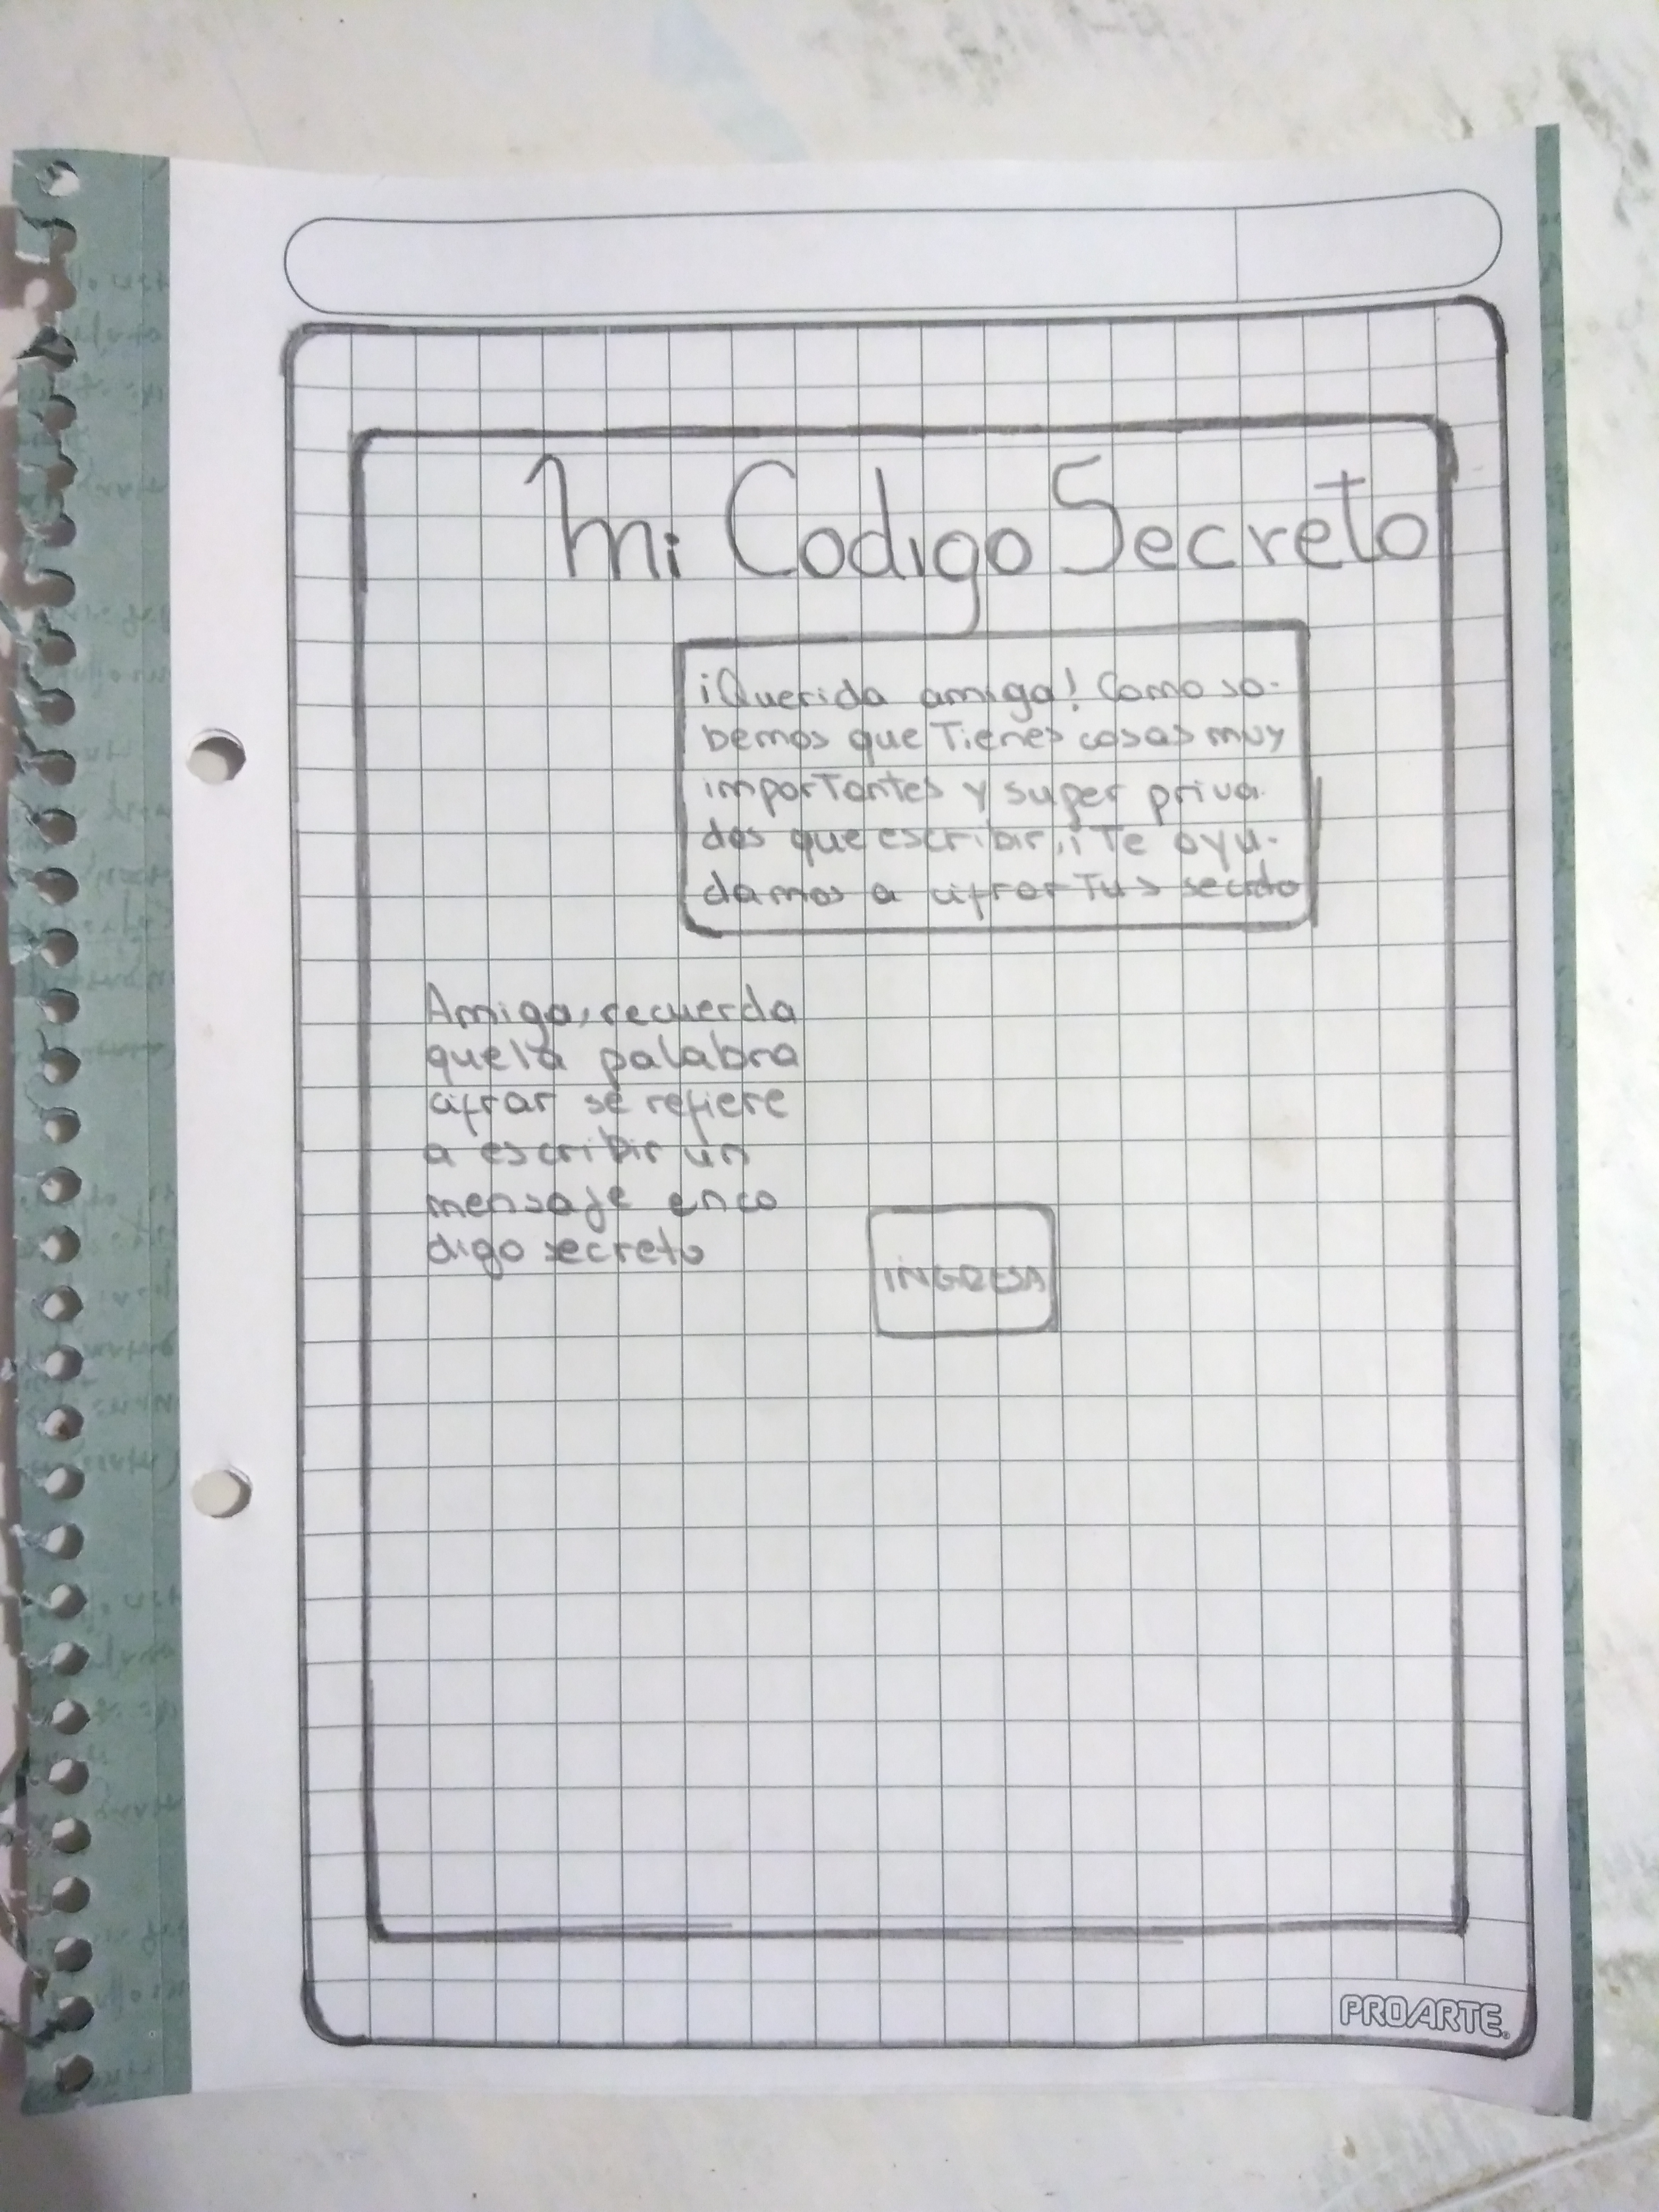 Mi Codigo Secreto
¡Querida amiga! Como sa-
bemos que Tienes cosas muy
importantes y super priva-
das que escribir, ¡Te ayu-
damos a cifrar Tus secreto
Amiga, recuerda
que la palabra
cifrar se refiere
a escribir un
mensaje en co
digo secreto
INGRESA
PROARTE